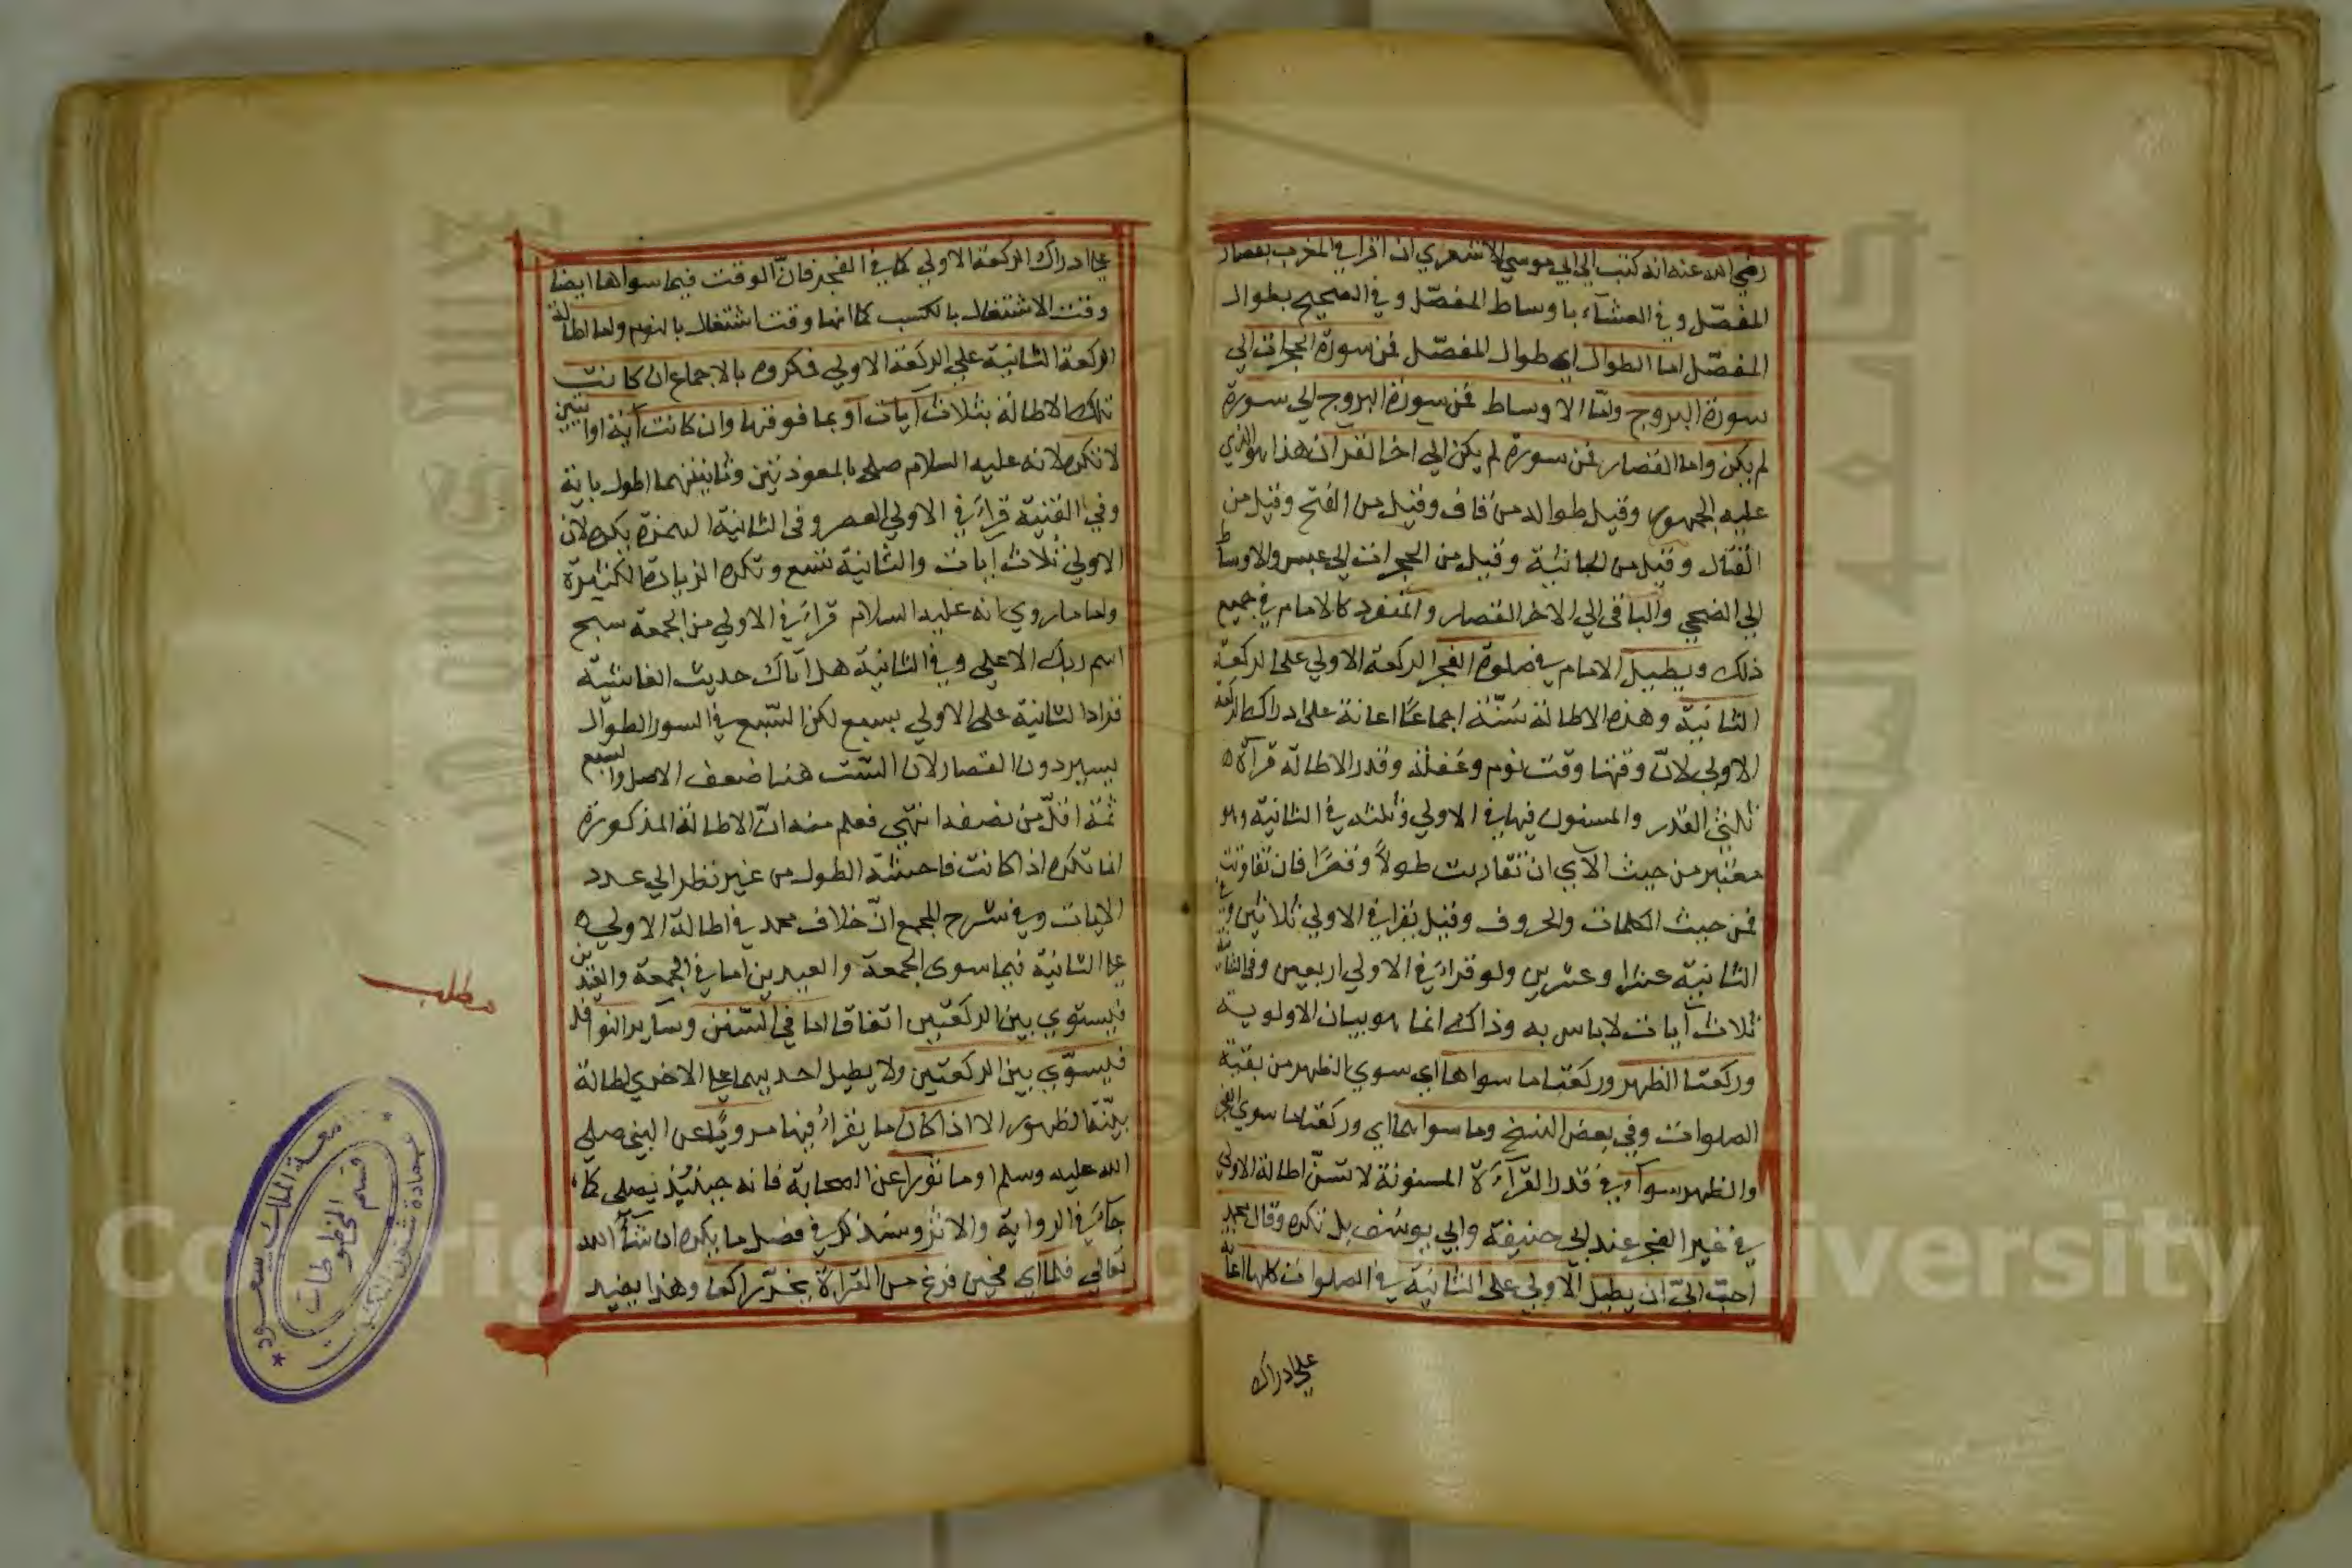 رضي الله عنه انه كتب الي ابي موسي الاشعري ان اقرا في المغرب بقصار
المفصّل وفي العشآء باوساط المفصّل وفي الصبح بطوال
المفصّل اما الطوال اي طوال المفصّل فمن سورة الحجرات الي
سورة البروج وامّا الاوساط فمن سورة البروج الي سورة
لم يكن واما القصار فمن سورة لم يكن الي اخر القران هذا هو الذي
عليه الجمهور وقيل طواله من قاف وقيل من الفتح وقيل من
القتال وقيل من الجاثية وقيل من الحجرات الي عبس والاوساط
الي الضحي والباقي الي الاخر القصار والمنفرد كالامام في جميع
ذلك ويطيل الامام في صلوة الفجر الركعة الاولي على الركعة
الثانية وهذه الاطالة سنّة اجماعًا اعانة على ادراك الركعة
الاولي لانّ وقتها وقت نوم وغفلة وقدر الاطالة قرآة ه
ثلثي القدر والمسنون فيها في الاولي وثلثه في الثانية وهو
معتبر من حيث الآي ان تقاربت طولاً وقصرًا فان تفاوتت
فمن حيث الكلمات والحروف وقيل يقرا في الاولي ثلاثين وفي
الثانية عشرا وعشرين ولو قراء في الاولي اربعين وفي الثانية
ثلاث آيات لاباس به وذاك انما هو بيان الاولوية
وركعتا الظهر وركعتا ما سواها اي سوي الظهر من بقية
الصلوات وفي بعض النسخ وما سواهما اي وركعتا ما سوي الفجر
والظهر سوآء في قدر القرآءة المسنونة لا تسنّ اطالة الاولي
في غير الفجر عند ابي حنيفة وابي يوسف بل تكره وقال محمد
احبّ اليّ ان يطيل الاولي على الثانية في الصلوات كلها اعانة
على ادراك
علي ادراك الركعة الاولي كما في الفجر فانّ الوقت فيما سواها ايضا
وقت الاشتغال بالكسب كما انها وقت اشتغال بالنوم واما اطالة
الركعة الثانية علي الركعة الاولي فمكروه بالاجماع ان كانت
تلك الاطالة بثلاث آيات او بما فوقها وان كانت آية او ايتين
لا تكره لانه عليه السلام صلى بالمعوذتين وثانيتهما اطول باية
وفي القنية قراء في الاولي العصر وفي الثانية الهمزة يكره لان
الاولي ثلاث ايات والثانية تسع وتكره الزيادة الكثيرة
واما ما روي انه عليه السلام قراء في الاولي من الجمعة سبح
اسم ربك الاعلى وفي الثانية هل اتاك حديث الغاشية
فزاد الثانية على الاولي بسبع لكن السّبع في السور الطوال
يسير دون القصار لان الستّ هنا ضعف الاصل والسبع
ثمة اقلّ من نصفه انتهي فعلم منه انّ الاطالة المذكورة
انما تكره اذا كانت فاحشة الطول من غير نظر الي عدد
الايات وفي شرح المجمع انّ خلاف محمد في اطالة الاولي ه
علي الثانية فيما سوى الجمعة والعيدين اما في الجمعة والعيدين
فيستوي بين الركعتين اتفاقا اما في السّنن وساير النوافل
فيسوّي بين الركعتين ولا يطيل احديهما علي الاخري اطالة
بيّنة الظهور الا اذا كان ما يقراء فيها مرويًّا عن النبي صلى
الله عليه وسلم او ماثورا عن الصحابة فانه حينئذ يصلى كما
جاء في الرواية والاثر وسنذكر في فصل ما يكره ان شآء الله
تعالي فلما اي فحين فرغ من القرآة يخرّ راكعا وهذا يفيد
مطلب
جامعة الملك سعود
عمادة شئون المكتبات
قسم المخطوطات
Copyright © King Saud University
جامعة الملك سعود